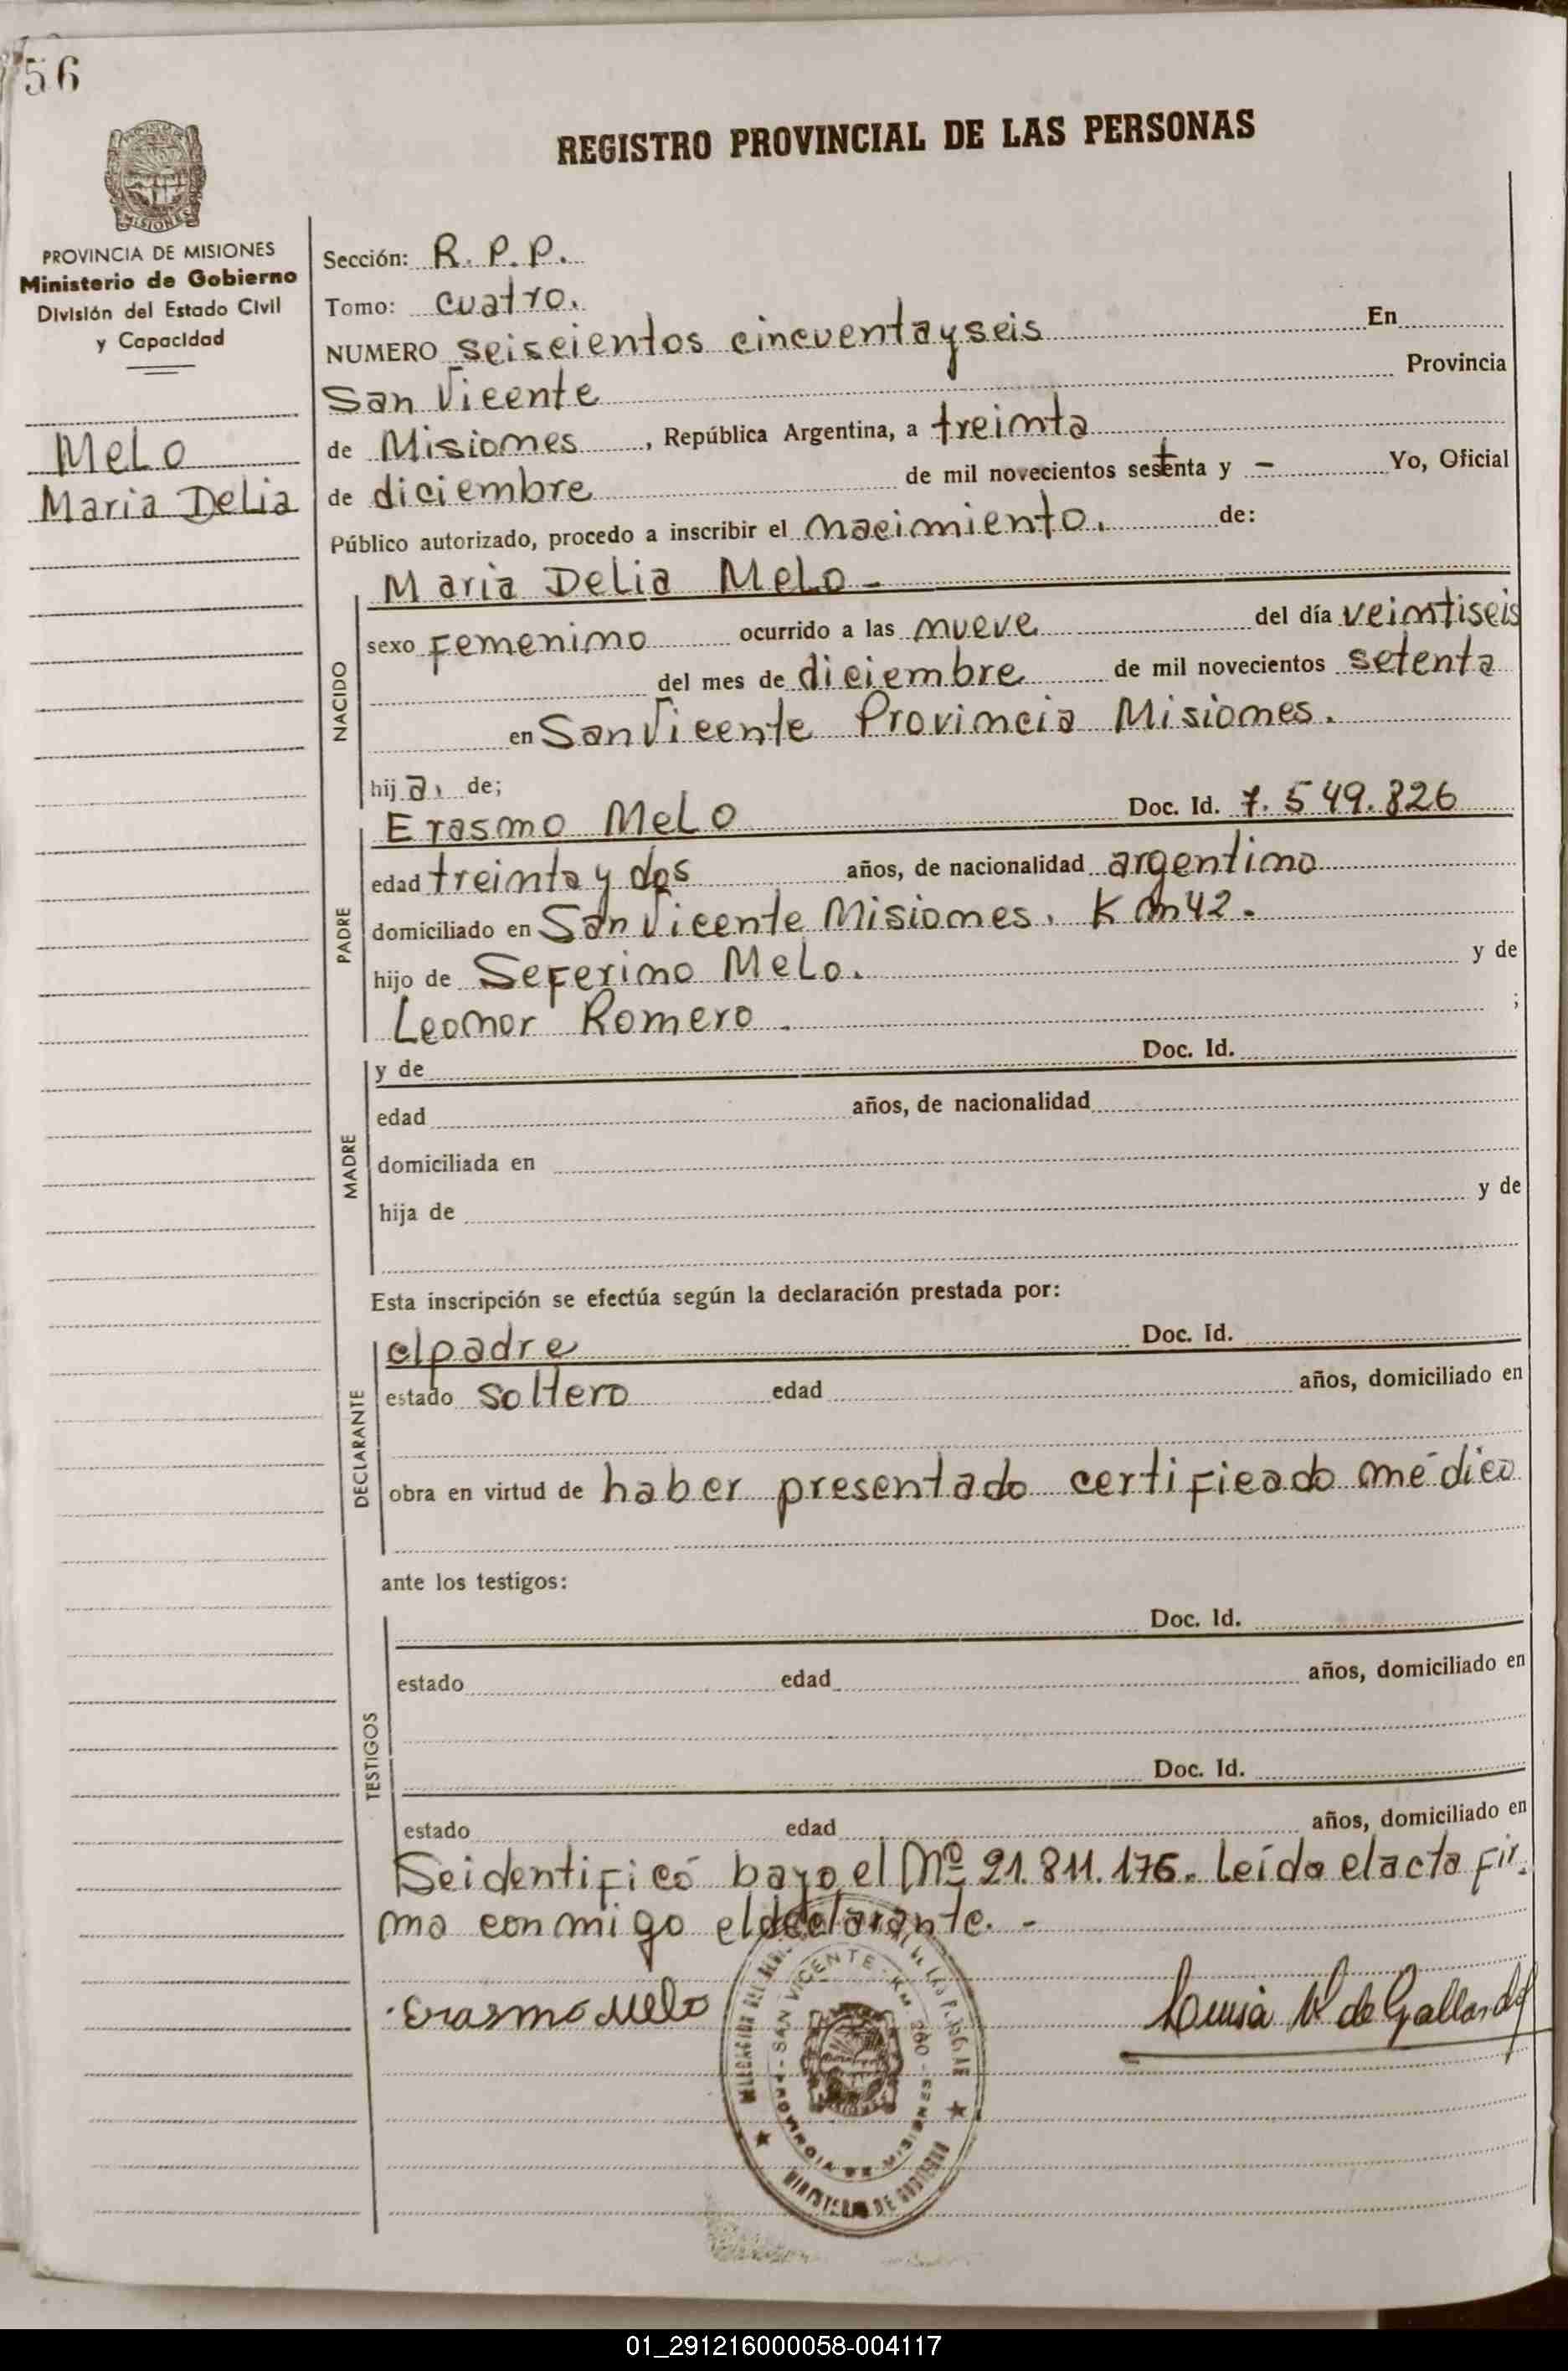 56
REGISTRO PROVINCIAL DE LAS PERSONAS
MISIONES
PROVINCIA DE MISIONES
Ministerio de Gobierno
División del Estado Civil
y Capacidad
Melo
Maria Delia
Sección: R. P. P.
Tomo: cuatro.
NUMERO seiscientos cincuentayseis En
San Vicente Provincia
de Misiones, República Argentina, a treinta
de diciembre de mil novecientos setenta y - Yo, Oficial
Público autorizado, procedo a inscribir el nacimiento. de:
NACIDO
Maria Delia Melo -
sexo Femenino ocurrido a las nueve del día veintiseis
del mes de diciembre de mil novecientos setenta
en San Vicente Provincia Misiones.
hija. de;
PADRE
Erasmo Melo Doc. Id. 7.549.826
edad treinta y dos años, de nacionalidad argentino
domiciliado en San Vicente Misiones. Km42.
hijo de Seferino Melo. y de
Leonor Romero. ;
MADRE
y de Doc. Id.
edad años, de nacionalidad
domiciliada en
hija de y de
Esta inscripción se efectúa según la declaración prestada por:
DECLARANTE
el padre Doc. Id.
estado soltero edad años, domiciliado en
obra en virtud de haber presentado certificado médico
ante los testigos:
TESTIGOS
Doc. Id.
estado edad años, domiciliado en
Doc. Id.
estado edad años, domiciliado en
Se identificó bayo el Nº 21.811.176. Leída el acta fir-
ma conmigo el declarante. -
Erasmo Melo
Luisa de Gallardo
SAN VICENTE - KM 260 -
PROVINCIA DE MISIONES
MINISTERIO DE GOBIERNO
01_291216000058-004117